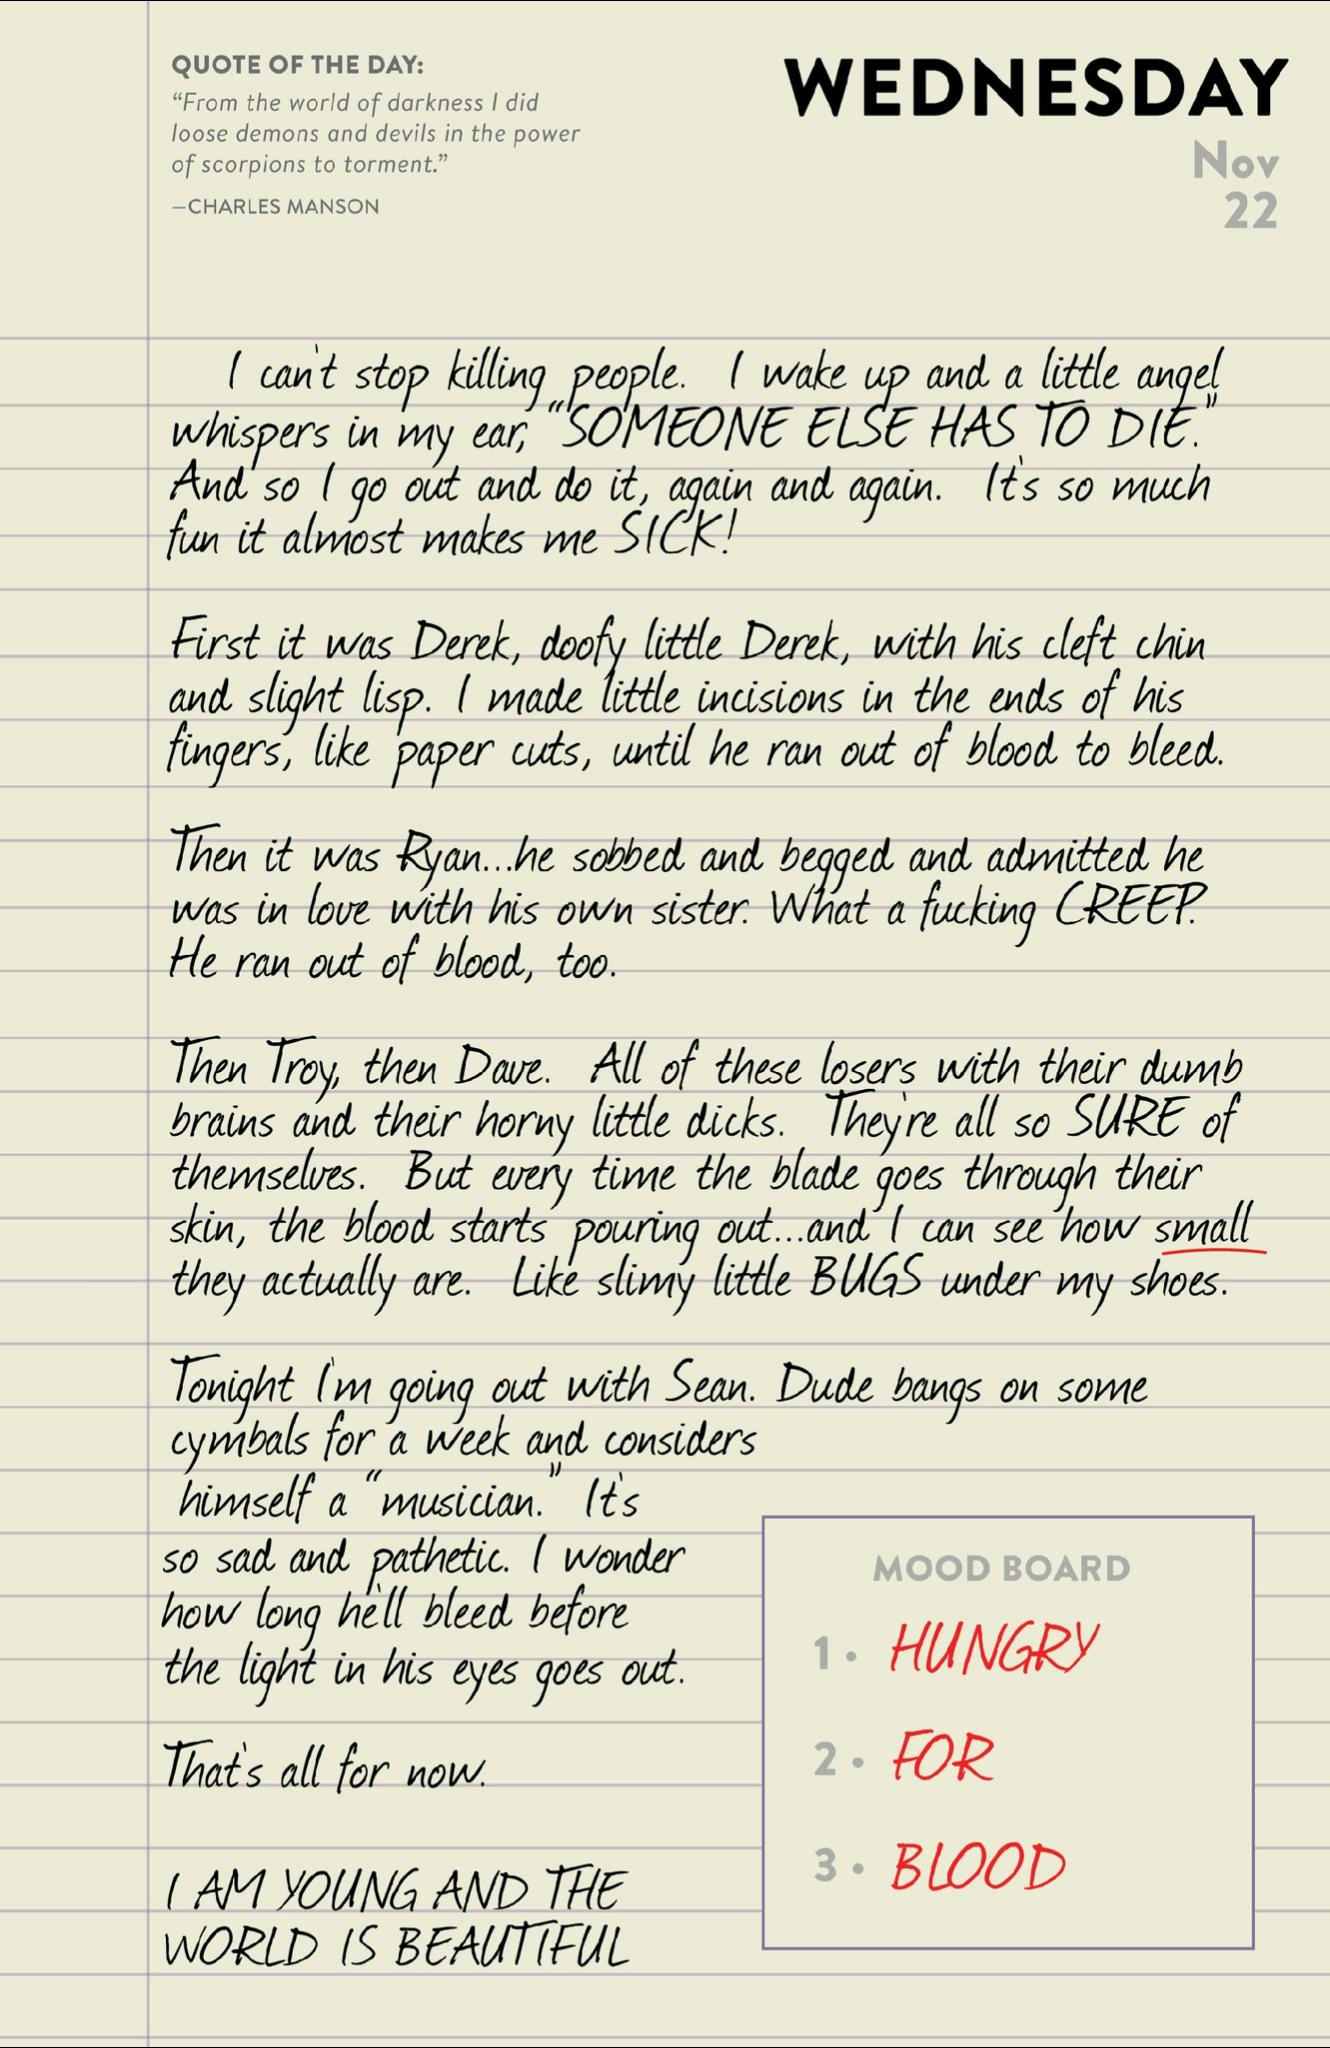 QUOTE OF THE DAY:
“From the world of darkness I did
loose demons and devils in the power
of scorpions to torment.”
—CHARLES MANSON
WEDNESDAY
Nov
22
I can't stop killing people. I wake up and a little angel
whispers in my ear, “SOMEONE ELSE HAS TO DIE.”
And so I go out and do it, again and again. It's so much
fun it almost makes me SICK!
First it was Derek, doofy little Derek, with his cleft chin
and slight lisp. I made little incisions in the ends of his
fingers, like paper cuts, until he ran out of blood to bleed.
Then it was Ryan...he sobbed and begged and admitted he
was in love with his own sister. What a fucking CREEP.
He ran out of blood, too.
Then Troy, then Dave. All of these losers with their dumb
brains and their horny little dicks. They're all so SURE of
themselves. But every time the blade goes through their
skin, the blood starts pouring out...and I can see how small
they actually are. Like slimy little BUGS under my shoes.
Tonight I'm going out with Sean. Dude bangs on some
cymbals for a week and considers
himself a “musician.” It's
so sad and pathetic. I wonder
how long he'll bleed before
the light in his eyes goes out.
That's all for now.
I AM YOUNG AND THE
WORLD IS BEAUTIFUL
MOOD BOARD
1 • HUNGRY
2 • FOR
3 • BLOOD